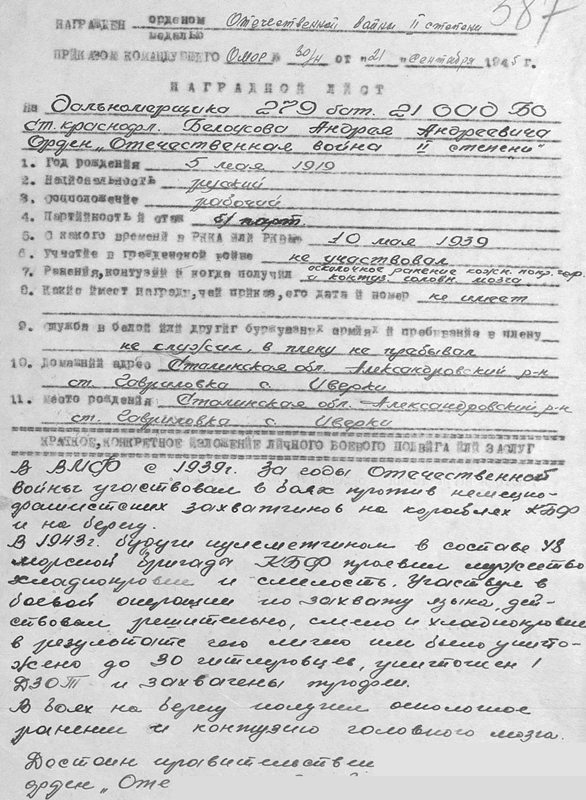 587
НАГРАЖДЕН орденом Отечественной войны II степени
медалью
ПРИКАЗОМ КОМАНДУЮЩЕГО Омор № 30/н от "21" сентября 1945 г.
НАГРАДНОЙ ЛИСТ
на Дальномерщика 279 бат. 21 ОАД БО
ст. краснофл. Белоусова Андрея Андреевича
Орден „Отечественная война II степени"
1. Год рождения 5 мая 1919
2. Национальность русский
3. Соцположение рабочий
4. Партийность и стаж б/парт.
5. С какого времени в РККА или РКВМФ 10 мая 1939
6. Участие в гражданской войне не участвовал
7. Ранения, контузий и когда получил осколочное ранение кожн. покр. чер.
и контуз. головн. мозга
8. Какие имеет награды, чей приказ, его дата и номер не имеет
9. Служба в белой или других буржуазных армиях и пребывание в плену
не служил, в плену не пребывал
10. Домашний адрес Сталинская обл. Александровский р-н
ст. Гавриловка с. Иверки
11. Место рождения Сталинская обл. Александровский р-н
ст. Гавриловка с. Иверки
КРАТКОЕ, КОНКРЕТНОЕ ИЗЛОЖЕНИЕ ЛИЧНОГО БОЕВОГО ПОДВИГА ИЛИ ЗАСЛУГ
В ВМФ с 1939г. За годы Отечественной
войны участвовал в боях против немецко-
фашистских захватчиков на кораблях КБФ
и на берегу.
В 1943г. будучи пулеметчиком в составе 48
морской бригады КБФ проявил мужество
хладнокровие и смелость. Участвуя в
боевой операции по захвату языка, дей-
ствовал решительно, смело и хладнокровно
в результате чего лично им было уничто-
жено до 30 гитлеровцев, уничтожен 1
ДЗОТ и захвачены трофеи.
В боях на берегу получил осколочное
ранение и контузию головного мозга.
Достоин правительствен
орден „Оте